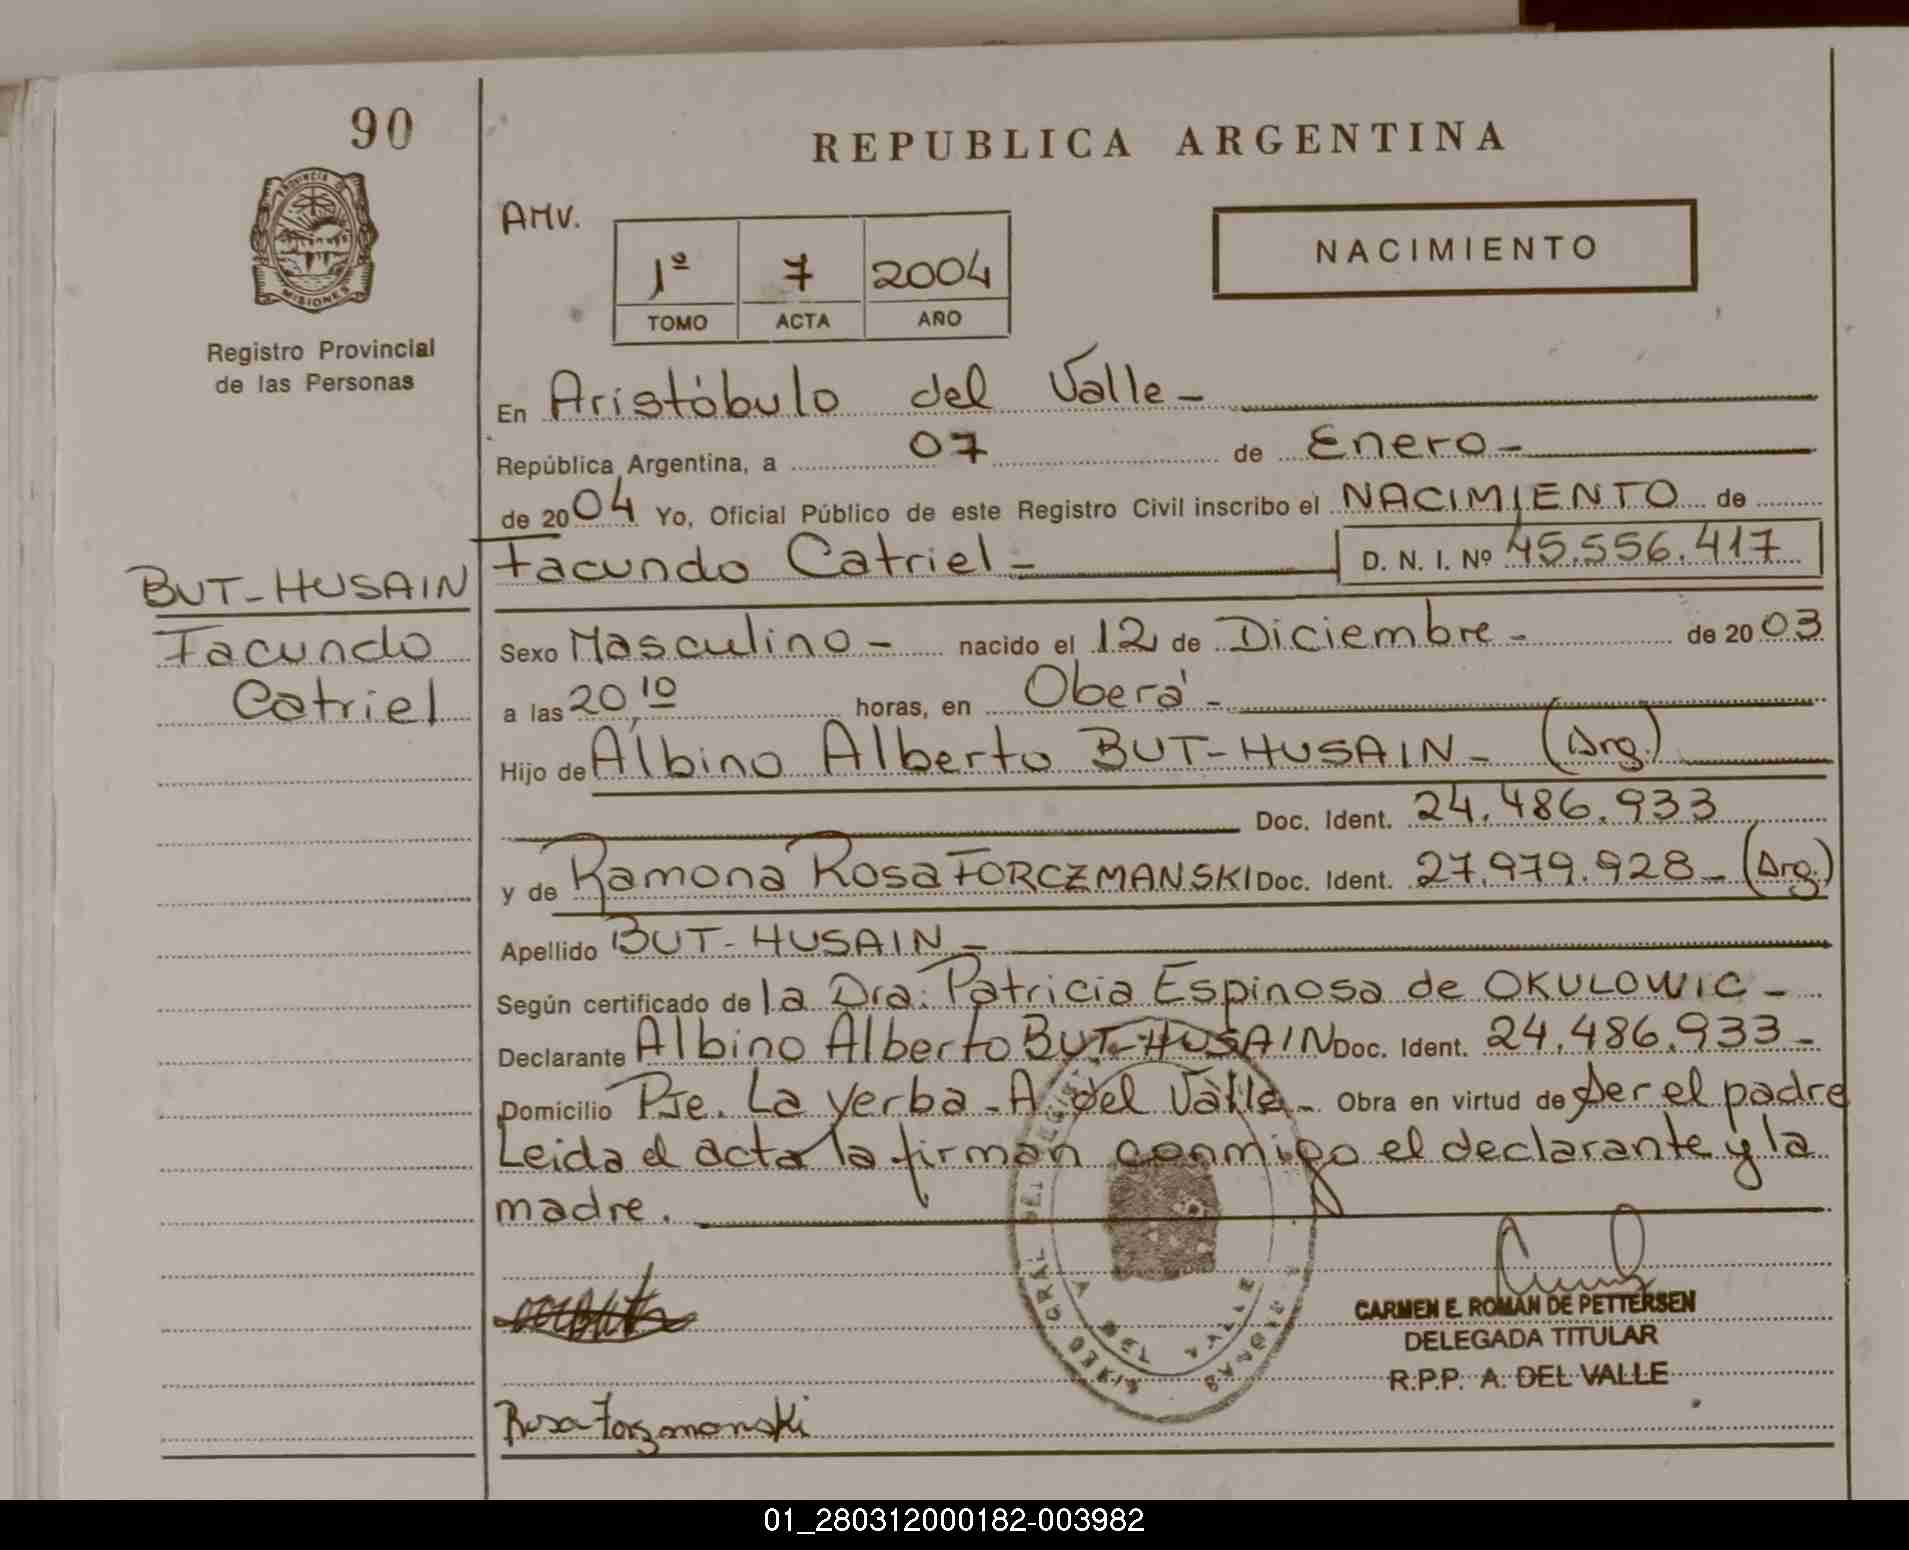 90
REPUBLICA ARGENTINA
PROVINCIA DE
MISIONES
Registro Provincial
de las Personas
AMV.
1º 7 2004
TOMO ACTA AÑO
NACIMIENTO
En Aristóbulo del Valle -
República Argentina, a 07 de Enero -
de 2004 Yo, Oficial Público de este Registro Civil inscribo el NACIMIENTO de
Facundo Catriel - D. N. I. Nº 45.556.417
BUT-HUSAIN
Facundo
Catriel
Sexo Masculino - nacido el 12 de Diciembre - de 2003
a las 20,10 horas, en Oberá -
Hijo de Albino Alberto BUT-HUSAIN - (Arg.)
Doc. Ident. 24.486.933
y de Ramona Rosa FORCZMANSKI Doc. Ident. 27.979.928 - (Arg.)
Apellido BUT-HUSAIN -
Según certificado de la Dra. Patricia Espinosa de OKULOWIC -
Declarante Albino Alberto BUT-HUSAIN Doc. Ident. 24.486.933 -
Domicilio Pje. La Yerba - A. del Valle - Obra en virtud de ser el padre
Leida el acta la firman conmigo el declarante y la
madre.
CARMEN E. ROMAN DE PETTERSEN
DELEGADA TITULAR
R.P.P. A. DEL VALLE
Rosa Forzmanski
01_280312000182-003982